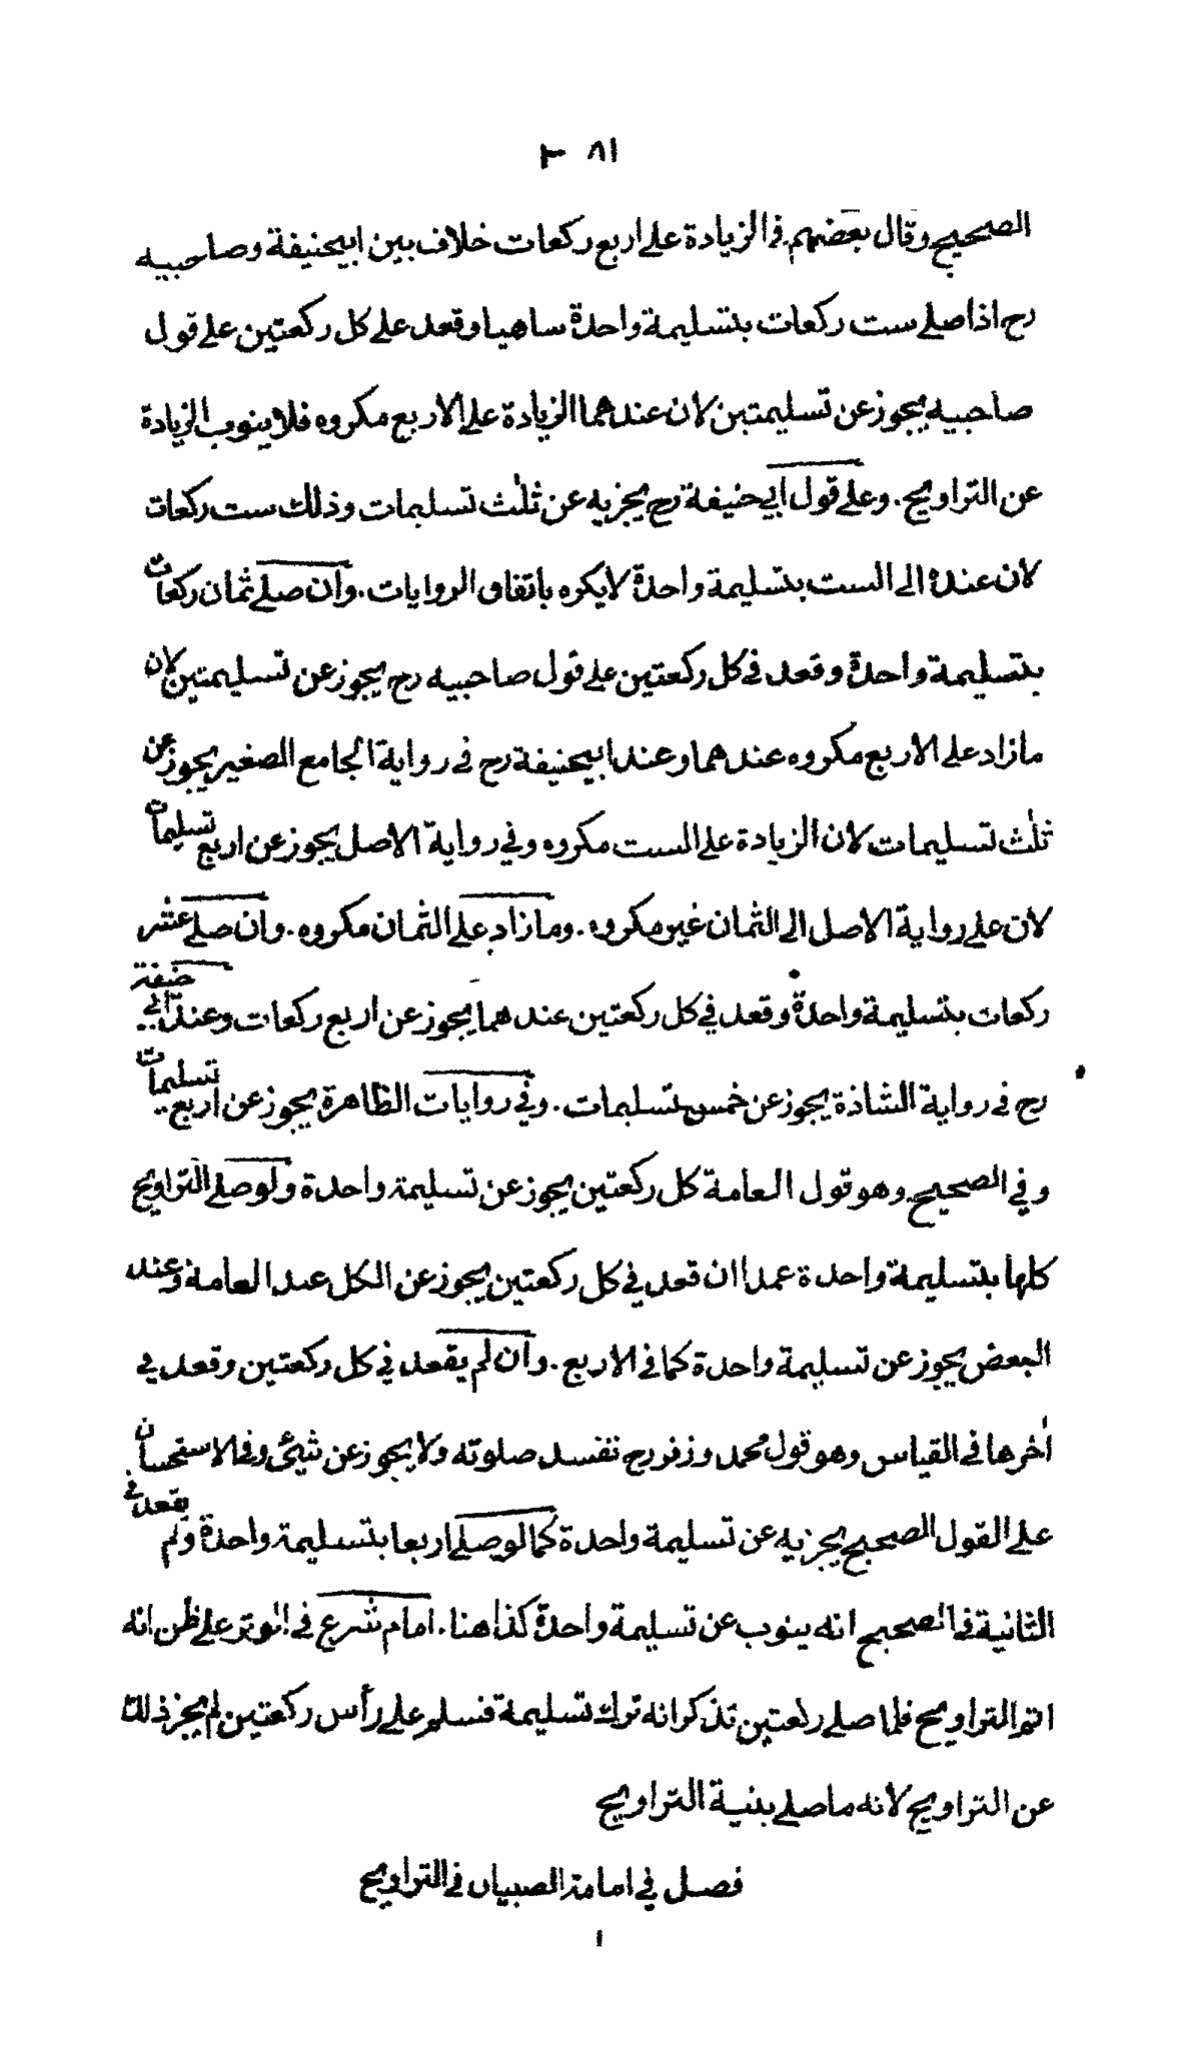 ٢٨١
الصحيح وقال بعضهم في الزيادة على اربع ركعات خلاف بين ابيحنيفة وصاحبيه
رح اذا صلے ست ركعات بتسليمة واحدة ساهيا وقعد على كل ركعتين على قول
صاحبيه يجوز عن تسليمتين لان عندهما الزيادة على الاربع مكروه فلا ينوب الزيادة
عن التراويح . وعلى قول ابي حنيفة رح يجزيه عن ثلٰث تسليمات وذلك ست ركعات
لان عندهٗ الى الست بتسليمة واحدة لا يكره باتفاق الروايات . وان صلے ثمان ركعات
بتسليمة واحدة وقعد في كل ركعتين على قول صاحبيه رح يجوز عن تسليمتين لان
مازاد على الاربع مكروه عندهما وعند ابيحنيفة رح في رواية الجامع الصغير يجوز عن
ثلٰث تسليمات لان الزيادة على الست مكروه وفي رواية الاصل يجوز عن اربع تسليمات
لان على رواية الاصل الى الثمان غير مكروه . وما زاد على الثمان مكروه . وان صلے عشر
ركعات بتسليمة واحدة وقعد في كل ركعتين عندهما يجوز عن اربع ركعات وعند ابي حنيفة
رح في رواية الشاذة يجوز عن خمس تسليمات . وفي روايات الظاهرة يجوز عن اربع تسليمات
وفي الصحيح وهو قول العامة كل ركعتين يجوز عن تسليمة واحدة ولو صلے التراويح
كلها بتسليمة واحدة عمدا ان قعد في كل ركعتين يجوز عن الكل عند العامة وعند
البعض يجوز عن تسليمة واحدة كما في الاربع . وان لم يقعد في كل ركعتين وقعد في
اٰخرها في القياس وهو قول محمد وزفر رح تفسد صلوته ولا يجوز عن شيئ وفي الاستحسان
على القول الصحيح يجزيه عن تسليمة واحدة كما لو صلے اربعا بتسليمة واحدة ولم يقعد في
الثانية في الصحيح انه ينوب عن تسليمة واحدة كذا هنا . امام شرع في الوتر على ظن انه
اتم التراويح فلما صلے ركعتين تذكر انه ترك تسليمة فسلم على رأس ركعتين لم يجز ذلك
عن التراويح لانه ما صلے بنية التراويح
فصل في امامة الصبيان في التراويح